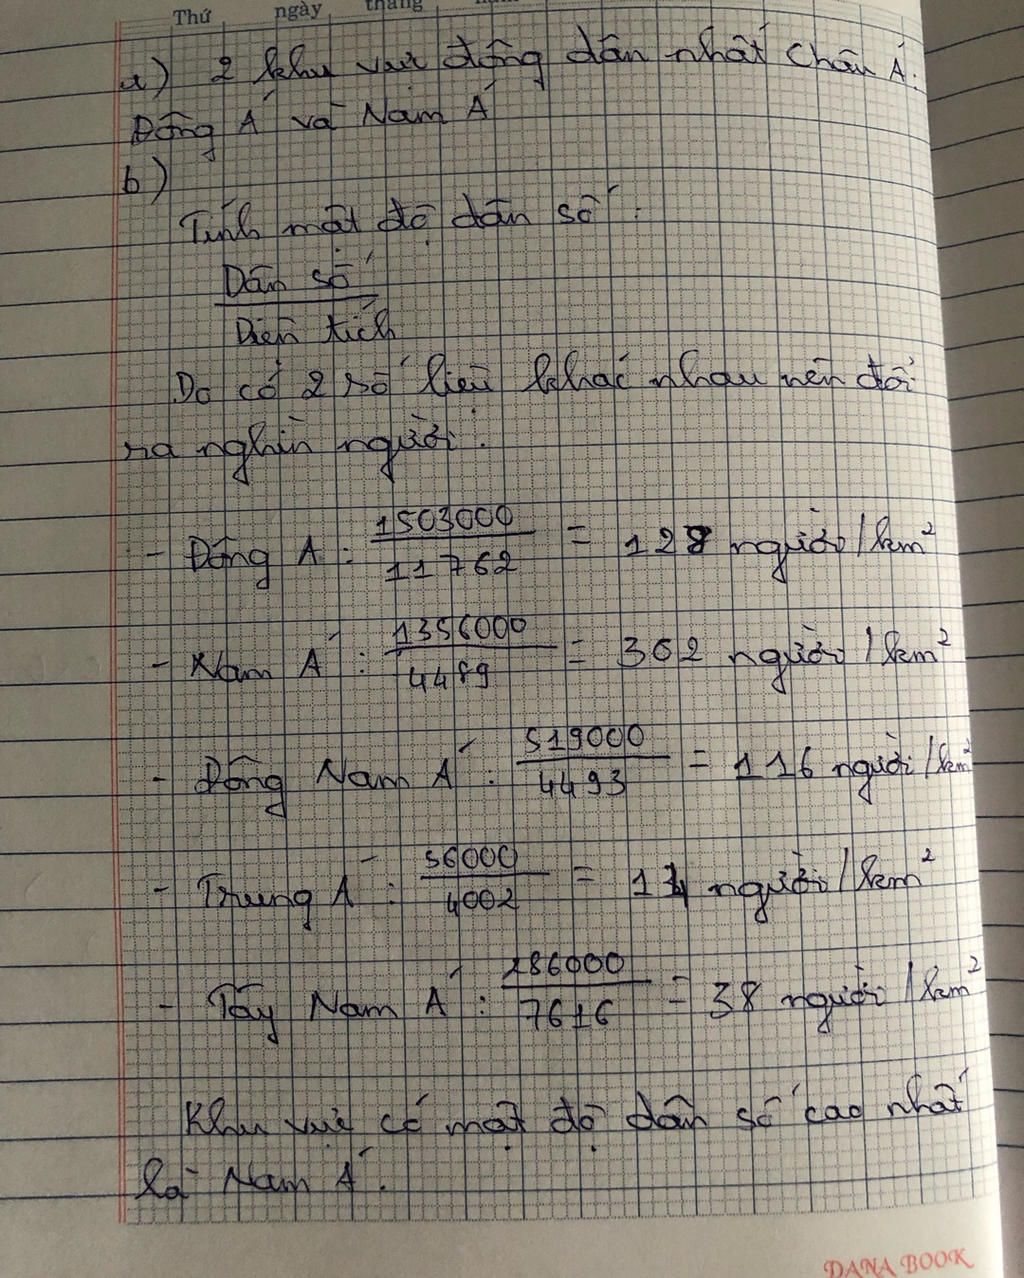 Thứ ngày tháng
a) 2 khu vực đông dân nhất Châu Á:
Đông Á và Nam Á
b)
Tính mật độ dân số:
Dân số
Diện tích
Do có 2 số liệu khác nhau nên đổi
ra nghìn người.
- Đông Á: 1503000 / 11762 = 128 người/km²
- Nam Á: 1356000 / 4489 = 302 người/km²
- Đông Nam Á: 519000 / 4493 = 116 người/km²
- Trung Á: 56000 / 4002 = 14 người/km²
- Tây Nam Á: 286000 / 7616 = 38 người/km²
Khu vực có mật độ dân số cao nhất
là Nam Á.
DANA BOOK